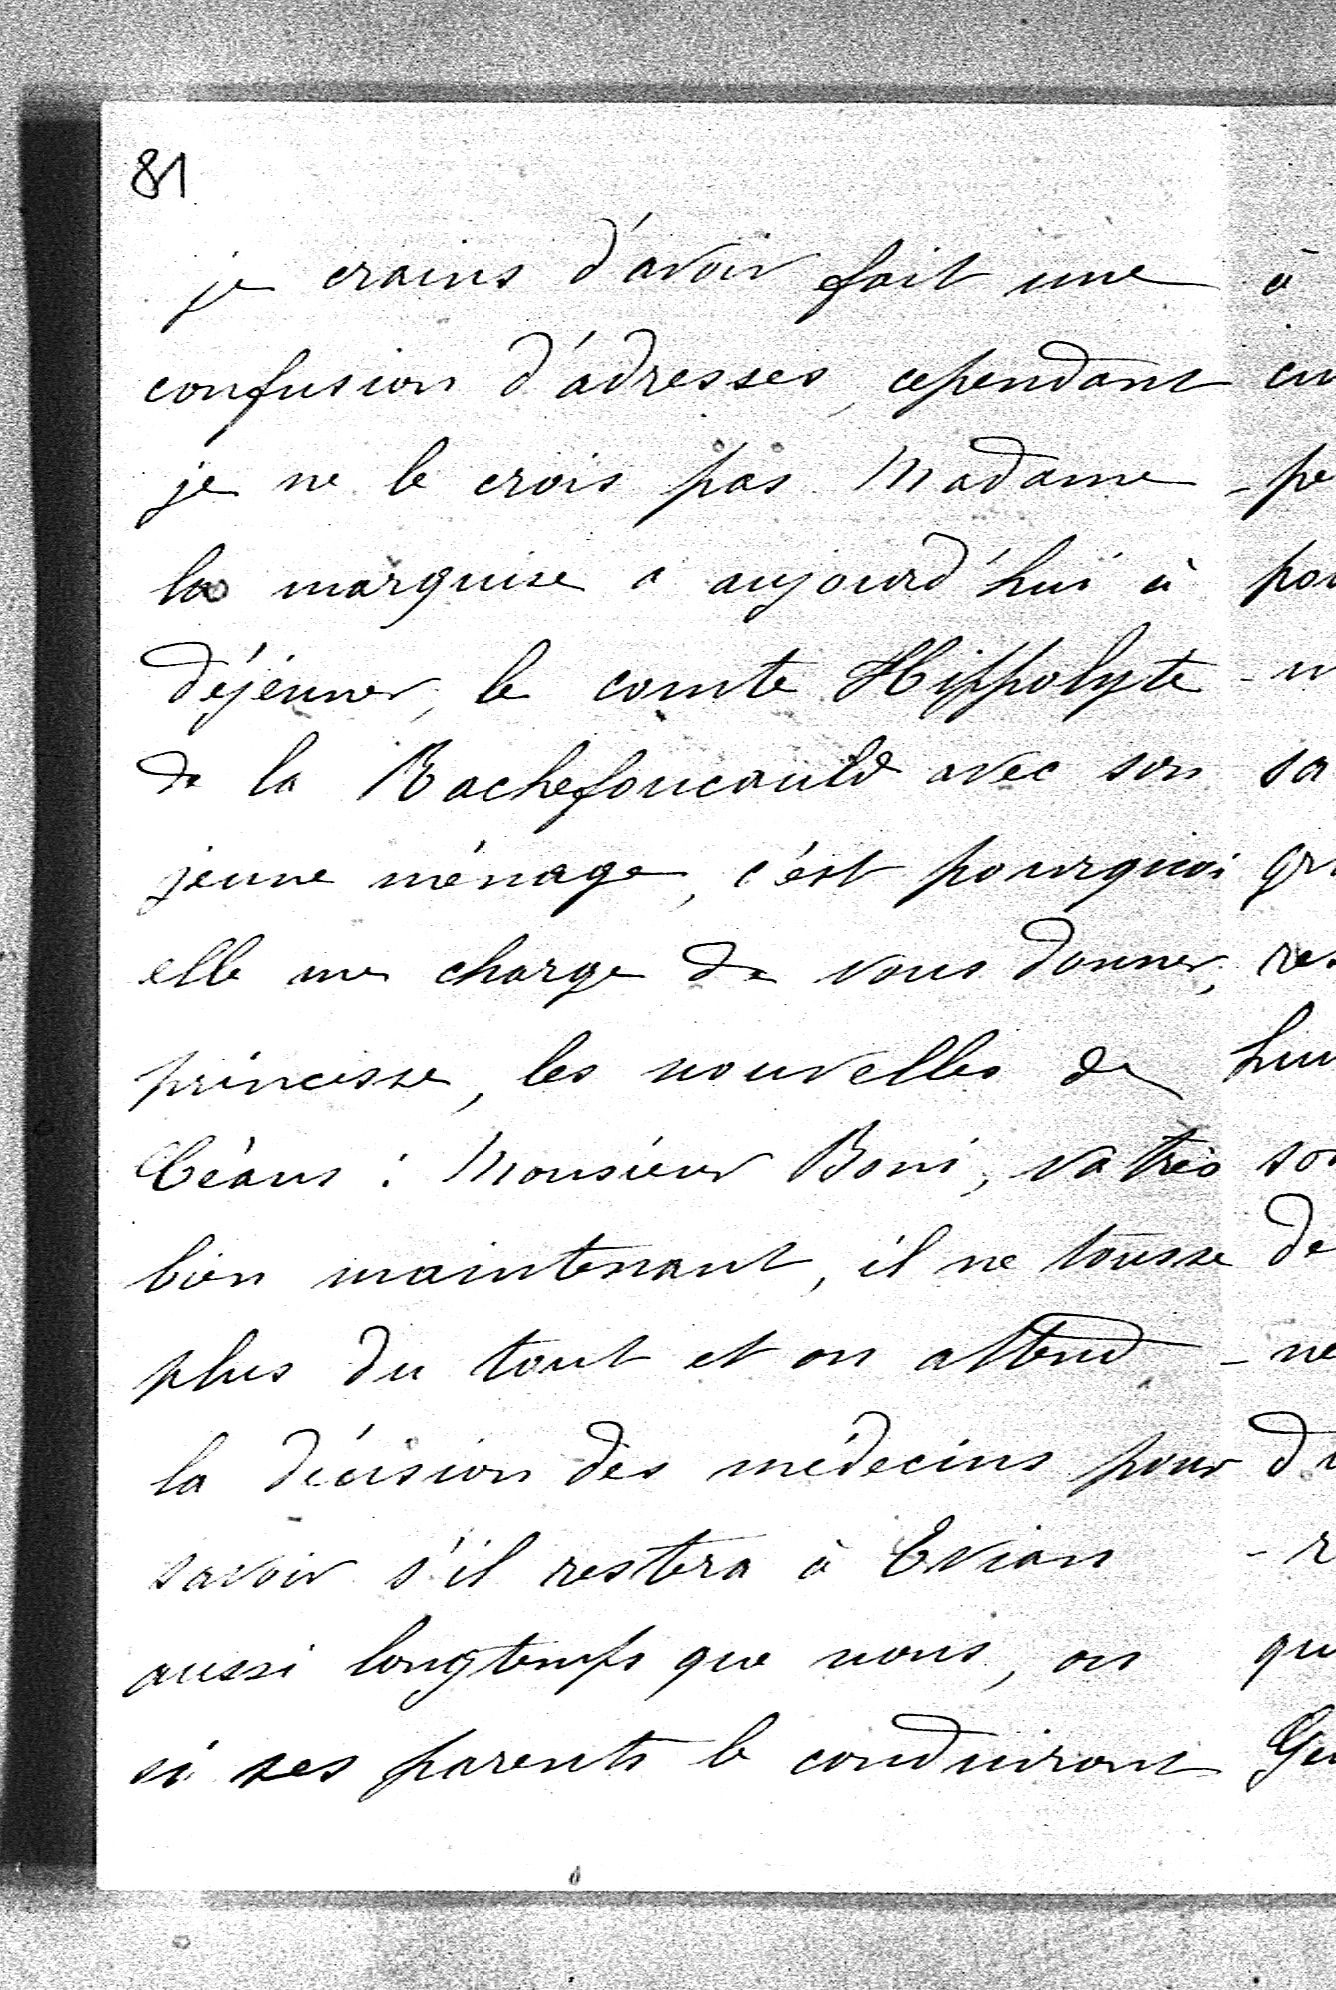 81
je crains d'avoir fait une
confusion d'adresses, cependant
je ne le crois pas. Madame
la marquise a aujourd'hui à
déjeuner, le comte Hippolyte
de la Rochefoucauld avec son
jeune ménage, c'est pourquoi
elle me charge de vous donner,
princesse, les nouvelles de
Céans : Monsieur Boni, va très
bien maintenant, il ne tousse
plus du tout et on attend
la décision des médecins pour
savoir s'il restera à Evian
aussi longtemps que nous, ou
si ses parents le conduiront